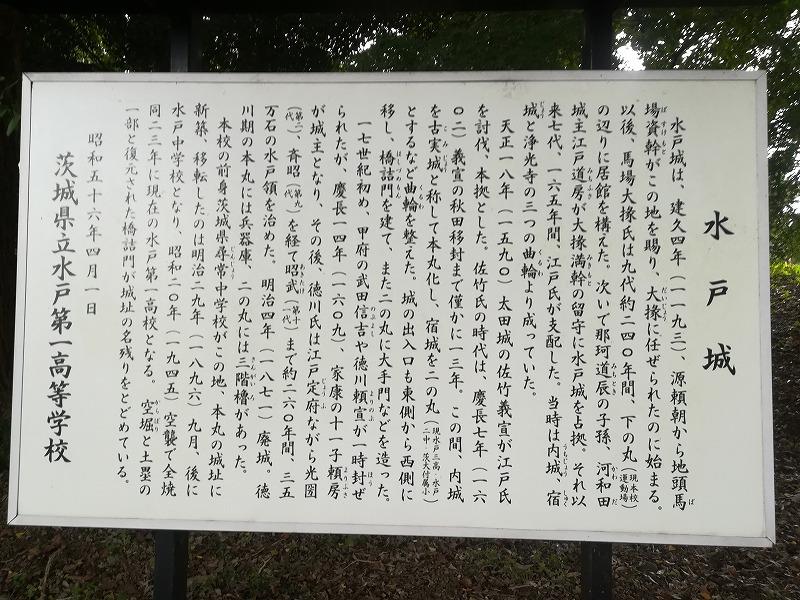 水戸城
水戸城は、建久四年（一一九三）、源頼朝から地頭馬
場資幹がこの地を賜り、大掾に任ぜられたのに始まる。
以後、馬場大掾氏は九代約二四〇年間、下の丸（現本校運動場）
の辺りに居館を構えた。次いで那珂道辰の子孫、河和田
城主江戸道房が大掾満幹の留守に水戸城を占拠。それ以
来七代、一六五年間、江戸氏が支配した。当時は内城、宿
城と浄光寺の三つの曲輪より成っていた。
天正一八年（一五九〇）太田城の佐竹義宣が江戸氏
を討伐、本拠とした。佐竹氏の時代は、慶長七年（一六
〇二）義宣の秋田移封まで僅かに一三年。この間、内城
を古実城と称して本丸化し、宿城を二の丸（現水戸三高・水戸二中・茨大付属小）
とするなど曲輪を整えた。城の出入口も東側から西側に
移し、橋詰門を建て、また二の丸に大手門などを造った。
一七世紀初め、甲府の武田信吉や徳川頼宣が一時封ぜ
られたが、慶長一四年（一六〇九）、家康の十一子頼房
が城主となり、その後、徳川氏は江戸定府ながら光圀
（第二代）斉昭（第九代）を経て昭武（第十一代）まで約二六〇年間、三五
万石の水戸領を治めた。明治四年（一八七一）廃城。徳
川期の本丸には兵器庫、二の丸には三階櫓があった。
本校の前身茨城県尋常中学校がこの地、本丸の城址に
新築、移転したのは明治二九年（一八九六）九月、後に
水戸中学校となり、昭和二〇年（一九四五）空襲で全焼
同二三年に現在の水戸第一高校となる。空堀と土塁の
一部と復元された橋詰門が城址の名残りをとどめている。
昭和五十六年四月一日
茨城県立水戸第一高等学校